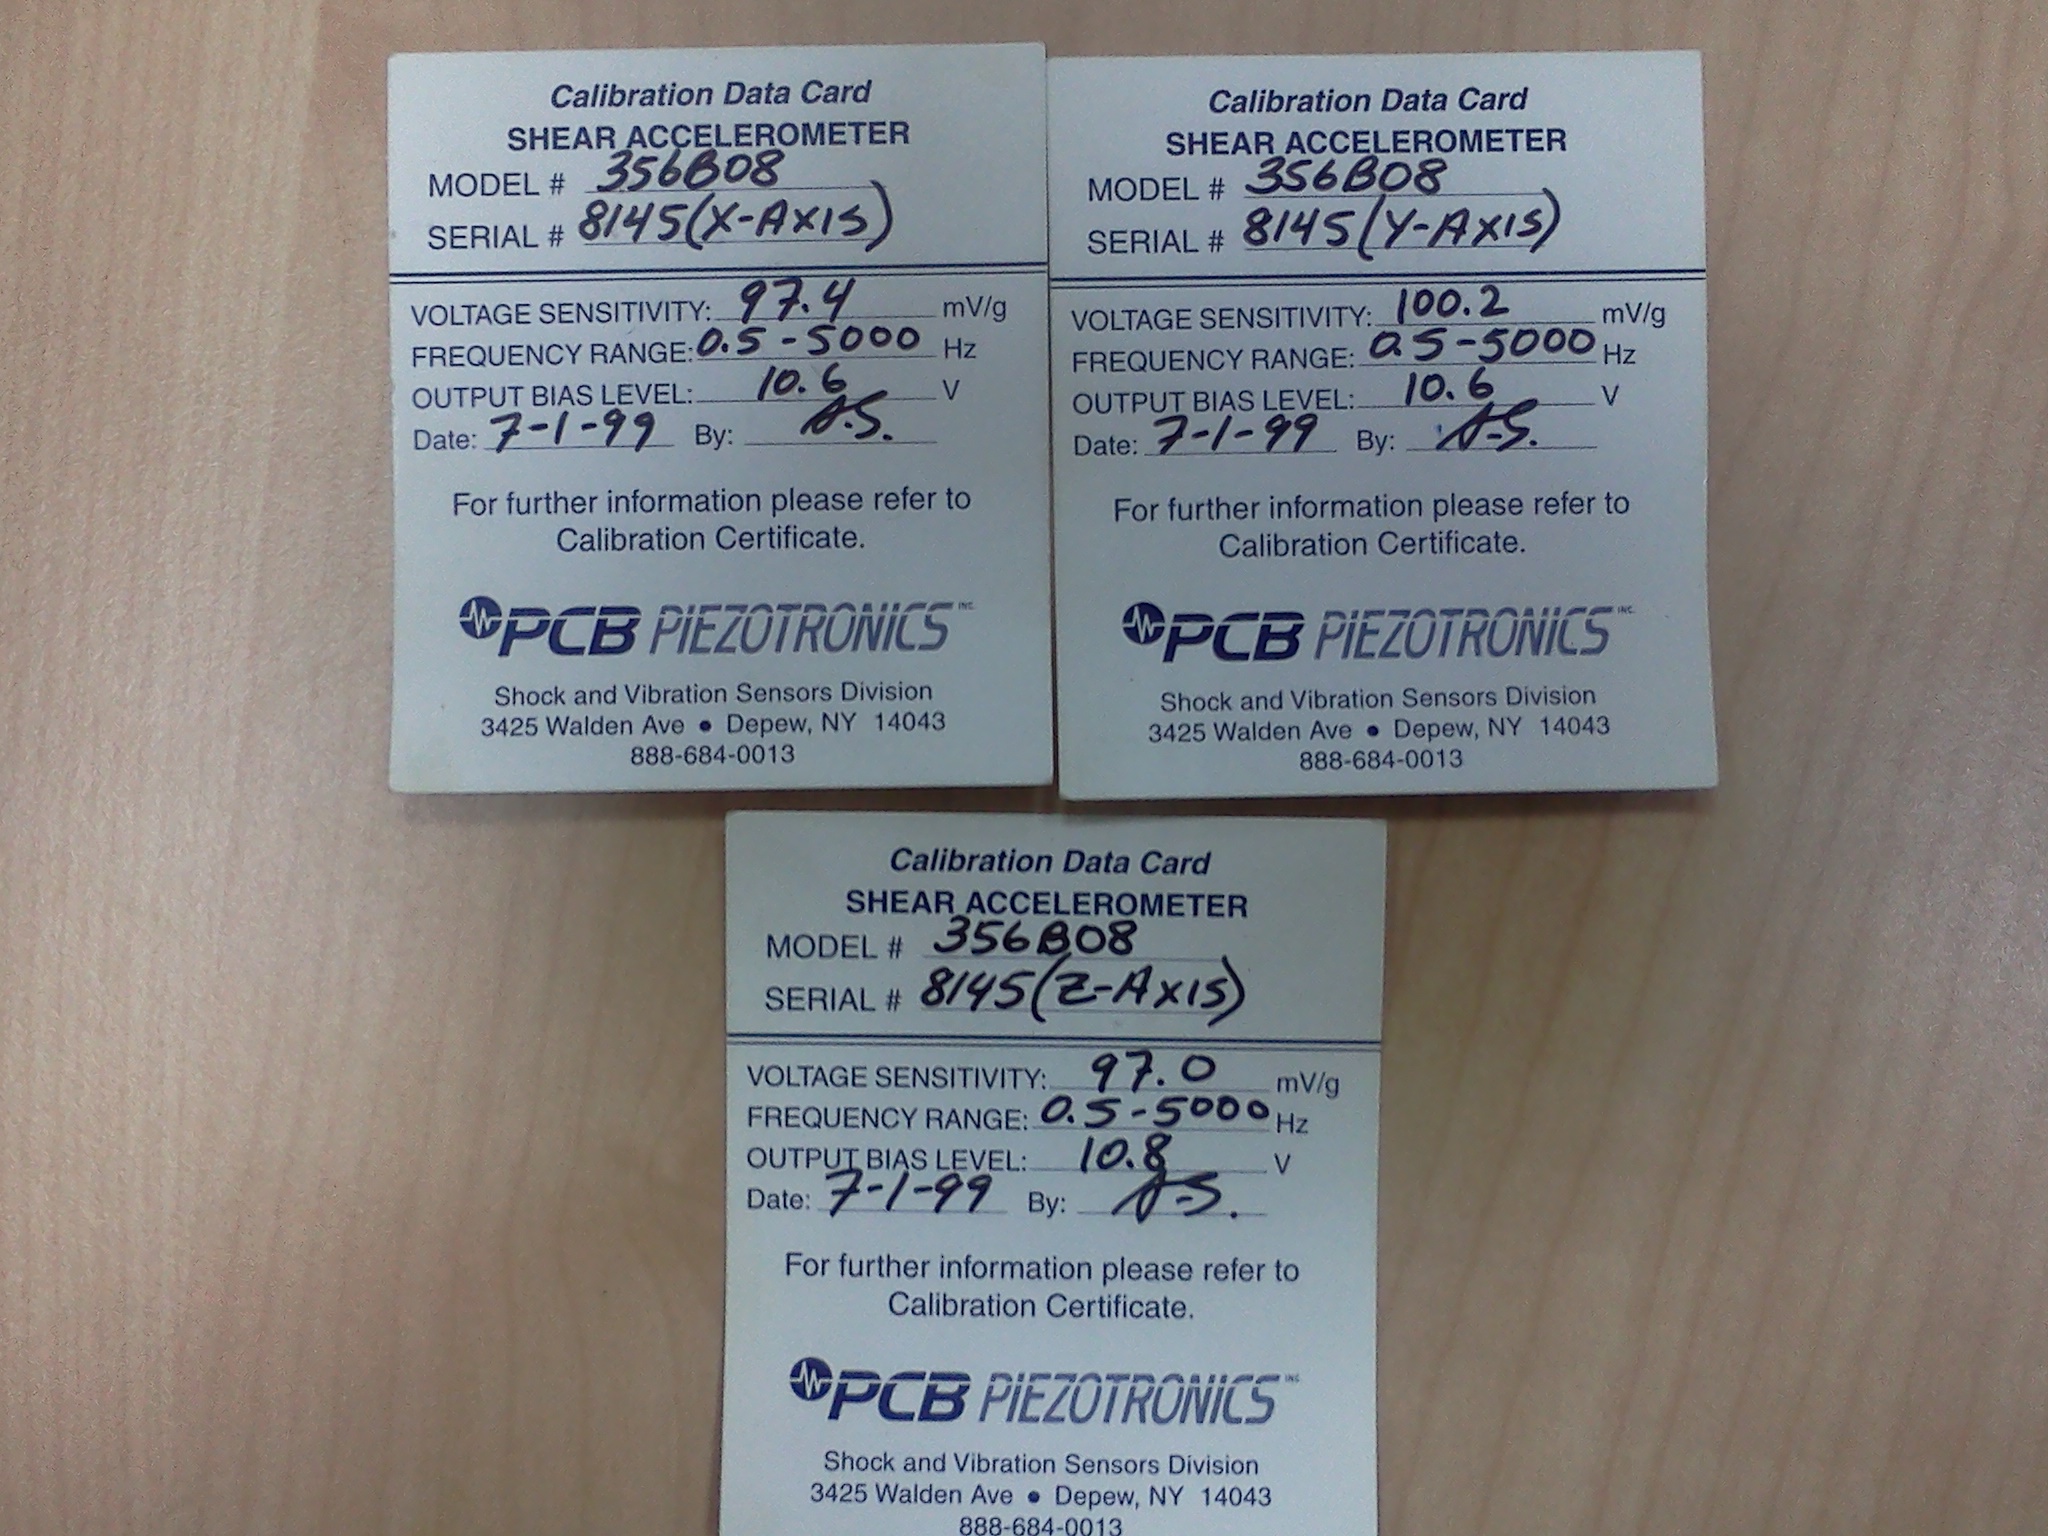 Calibration Data Card
SHEAR ACCELEROMETER
MODEL # 356B08
SERIAL # 8145(X-AXIS)
VOLTAGE SENSITIVITY: 97.4 mV/g
FREQUENCY RANGE: 0.5-5000 Hz
OUTPUT BIAS LEVEL: 10.6 V
Date: 7-1-99 By: A.S.
For further information please refer to
Calibration Certificate.
PCB PIEZOTRONICS INC.
Shock and Vibration Sensors Division
3425 Walden Ave • Depew, NY 14043
888-684-0013
Calibration Data Card
SHEAR ACCELEROMETER
MODEL # 356B08
SERIAL # 8145(Y-AXIS)
VOLTAGE SENSITIVITY: 100.2 mV/g
FREQUENCY RANGE: 0.5-5000 Hz
OUTPUT BIAS LEVEL: 10.6 V
Date: 7-1-99 By: A.S.
For further information please refer to
Calibration Certificate.
PCB PIEZOTRONICS INC.
Shock and Vibration Sensors Division
3425 Walden Ave • Depew, NY 14043
888-684-0013
Calibration Data Card
SHEAR ACCELEROMETER
MODEL # 356B08
SERIAL # 8145(Z-AXIS)
VOLTAGE SENSITIVITY: 97.0 mV/g
FREQUENCY RANGE: 0.5-5000 Hz
OUTPUT BIAS LEVEL: 10.8 V
Date: 7-1-99 By: A.S.
For further information please refer to
Calibration Certificate.
PCB PIEZOTRONICS INC.
Shock and Vibration Sensors Division
3425 Walden Ave • Depew, NY 14043
888-684-0013